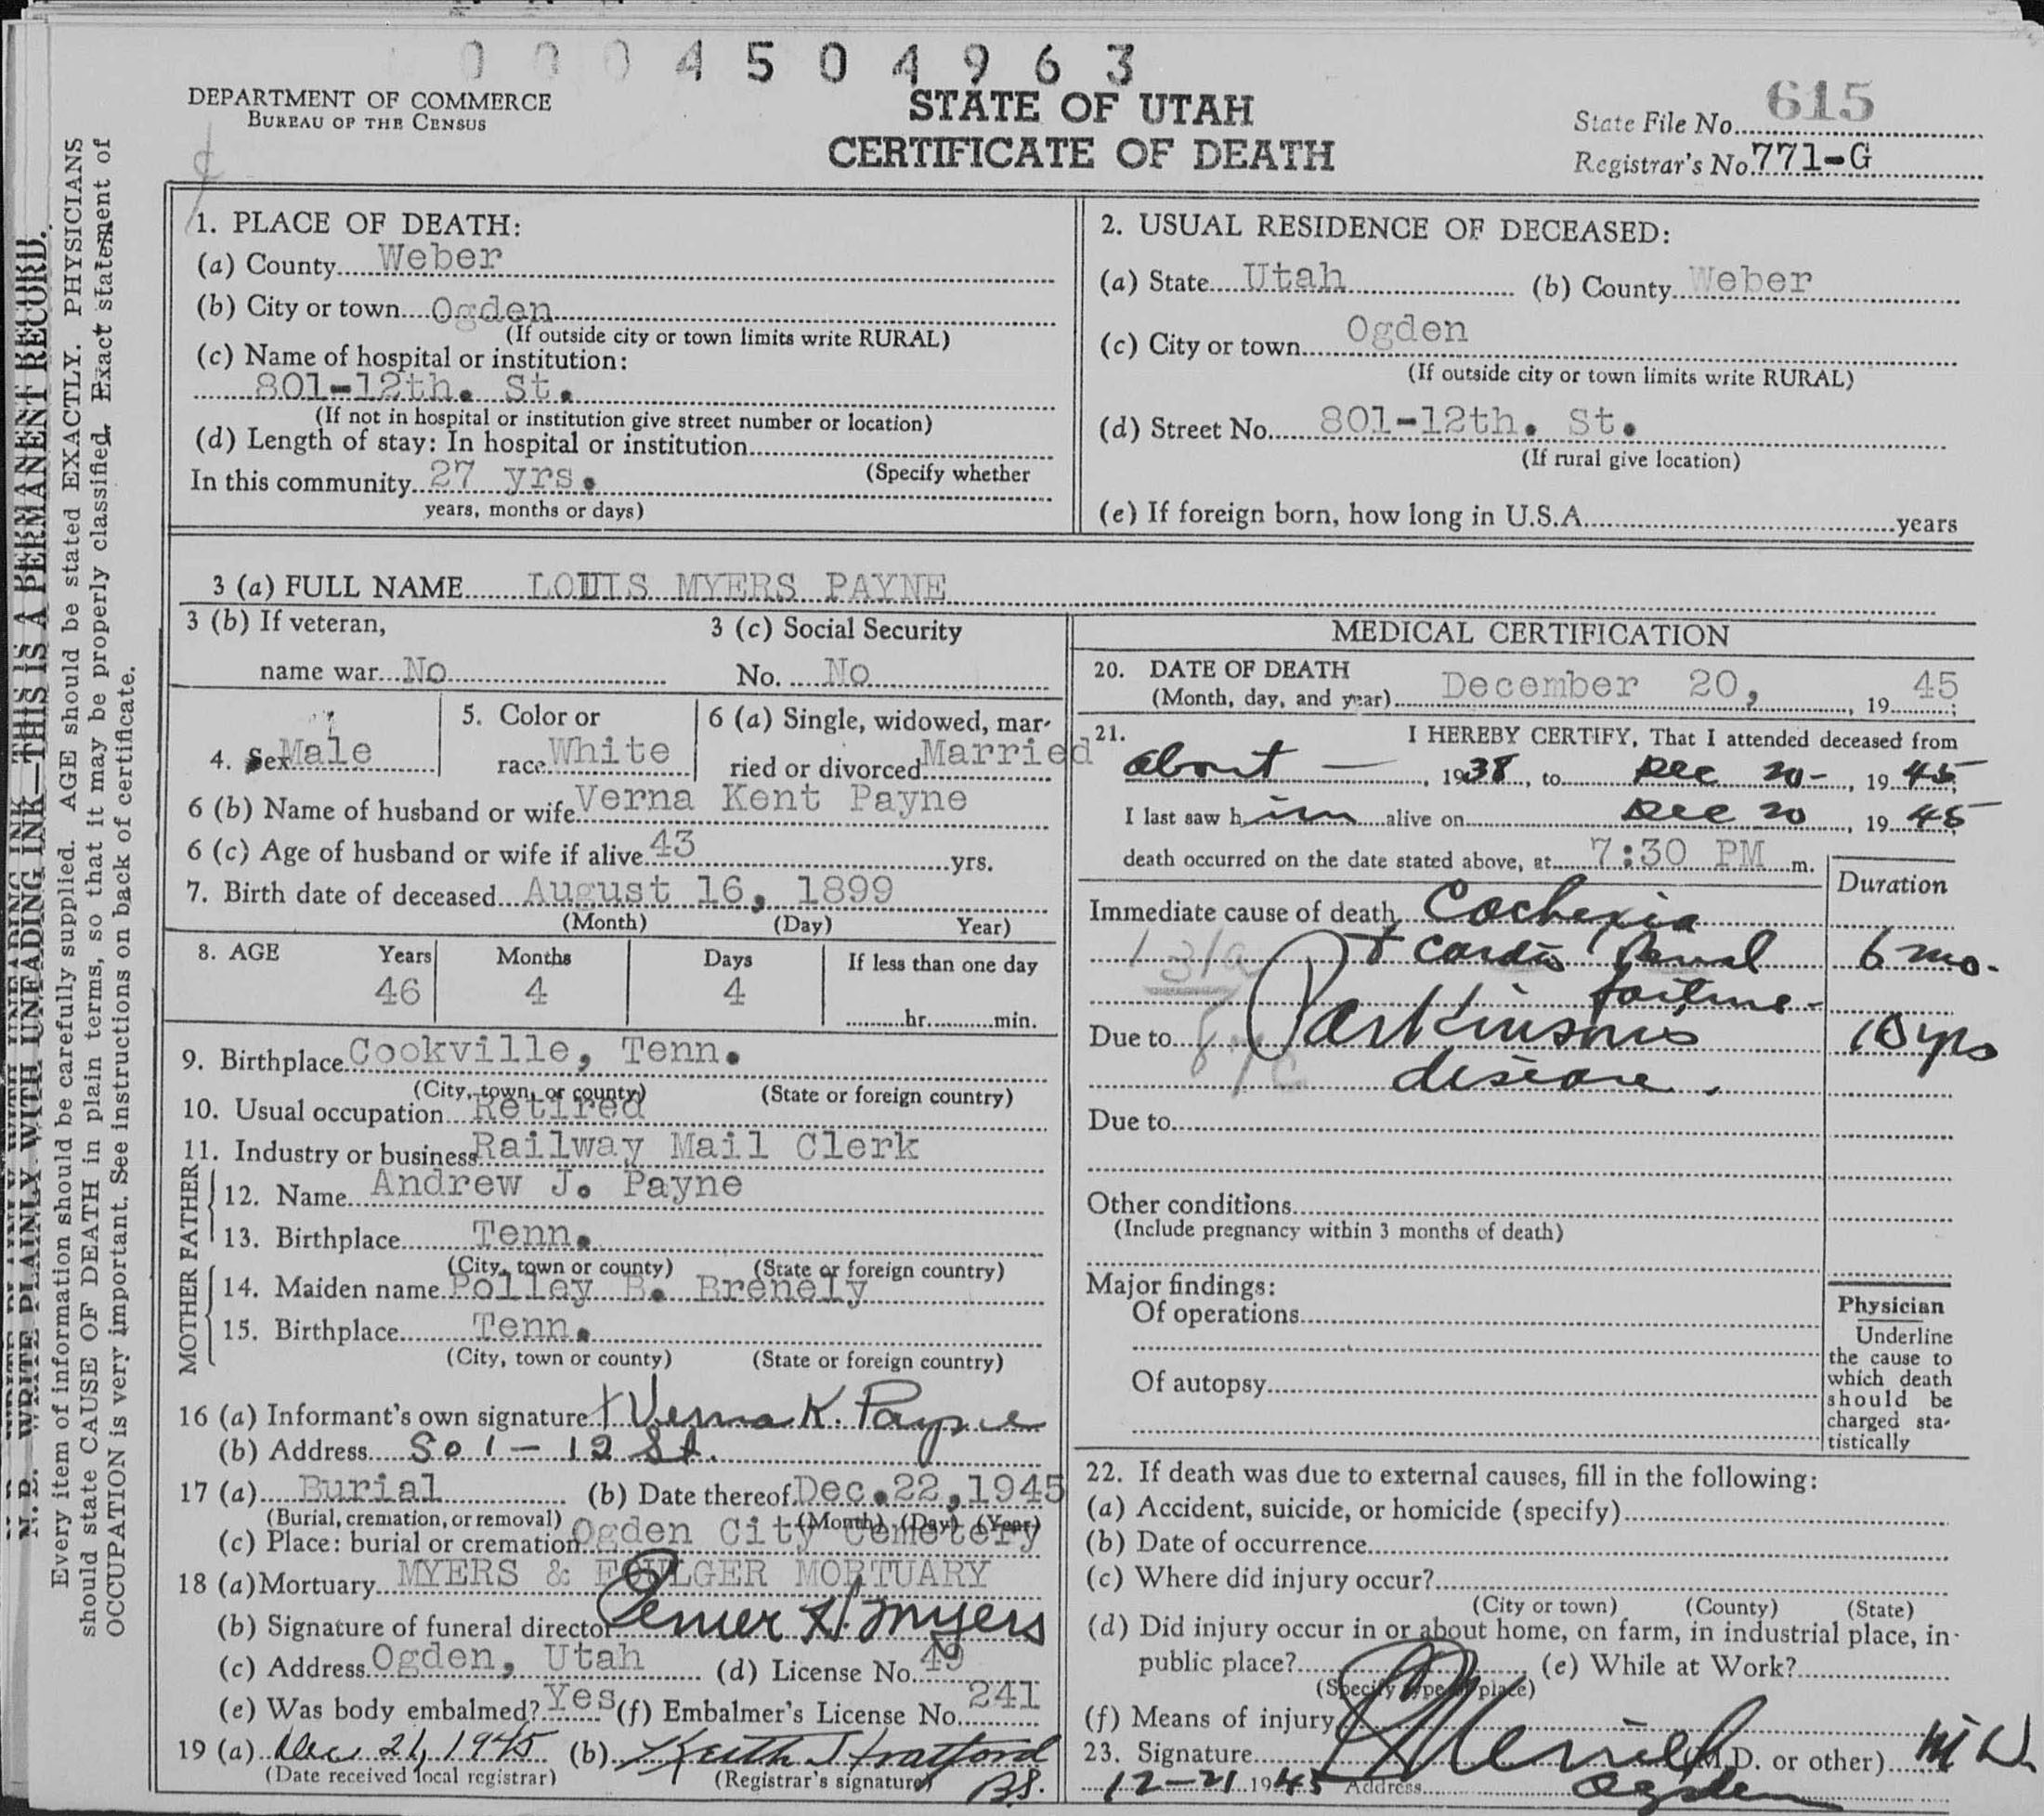 0004504963
DEPARTMENT OF COMMERCE
BUREAU OF THE CENSUS
STATE OF UTAH
CERTIFICATE OF DEATH
State File No. 615
Registrar's No. 771-G
N. B. WRITE PLAINLY WITH UNFADING INK—THIS IS A PERMANENT RECORD.
Every item of information should be carefully supplied. AGE should be stated EXACTLY. PHYSICIANS
should state CAUSE OF DEATH in plain terms, so that it may be properly classified. Exact statement of
OCCUPATION is very important. See instructions on back of certificate.
1. PLACE OF DEATH:
(a) County Weber
(b) City or town Ogden
(If outside city or town limits write RURAL)
(c) Name of hospital or institution:
801-12th. St.
(If not in hospital or institution give street number or location)
(d) Length of stay: In hospital or institution
(Specify whether
In this community 27 yrs.
years, months or days)
2. USUAL RESIDENCE OF DECEASED:
(a) State Utah (b) County Weber
(c) City or town Ogden
(If outside city or town limits write RURAL)
(d) Street No. 801-12th. St.
(If rural give location)
(e) If foreign born, how long in U.S.A. years
3 (a) FULL NAME LOUIS MYERS PAYNE
3 (b) If veteran,
name war No
3 (c) Social Security
No. No
4. Sex Male
5. Color or
race White
6 (a) Single, widowed, mar-
ried or divorced Married
6 (b) Name of husband or wife Verna Kent Payne
6 (c) Age of husband or wife if alive 43 yrs.
7. Birth date of deceased August 16, 1899
(Month) (Day) Year)
8. AGE Years Months Days If less than one day
46 4 4
hr. min.
9. Birthplace Cookville, Tenn.
(City, town, or county) (State or foreign country)
10. Usual occupation Retired
11. Industry or business Railway Mail Clerk
FATHER
12. Name Andrew J. Payne
13. Birthplace Tenn.
(City, town or county) (State or foreign country)
MOTHER
14. Maiden name Polley B. Brenely
15. Birthplace Tenn.
(City, town or county) (State or foreign country)
16 (a) Informant's own signature Verna K. Payne
(b) Address 801 - 12 St.
17 (a) Burial (b) Date thereof Dec. 22, 1945
(Burial, cremation, or removal) (Month) (Day) (Year)
(c) Place: burial or cremation Ogden City Cemetery
18 (a) Mortuary MYERS & FOULGER MORTUARY
(b) Signature of funeral director Elmer H. Myers
(c) Address Ogden, Utah (d) License No. 49
(e) Was body embalmed? Yes (f) Embalmer's License No. 241
19 (a) Dec 21, 1945 (b) Keith Stratford
(Date received local registrar) (Registrar's signature) BS.
MEDICAL CERTIFICATION
20. DATE OF DEATH
(Month, day, and year) December 20, 19 45;
21. I HEREBY CERTIFY, That I attended deceased from
about — , 1938, to Dec 20-, 19 45;
I last saw h im alive on Dec 20, 19 45;
death occurred on the date stated above, at 7:30 PM m.
Duration
Immediate cause of death Cachexia
+ Cardio Renal 6 mo.
131a
failure
Due to Parkinsons 10 yrs
87c
disease.
Due to
Other conditions
(Include pregnancy within 3 months of death)
Major findings:
Of operations
Of autopsy
Physician
Underline
the cause to
which death
should be
charged sta-
tistically
22. If death was due to external causes, fill in the following:
(a) Accident, suicide, or homicide (specify)
(b) Date of occurrence
(c) Where did injury occur?
(City or town) (County) (State)
(d) Did injury occur in or about home, on farm, in industrial place, in
public place? (e) While at Work?
(Specify type of place)
(f) Means of injury
23. Signature Merrill (M.D. or other) M D.
12-21 1945 Address Ogden